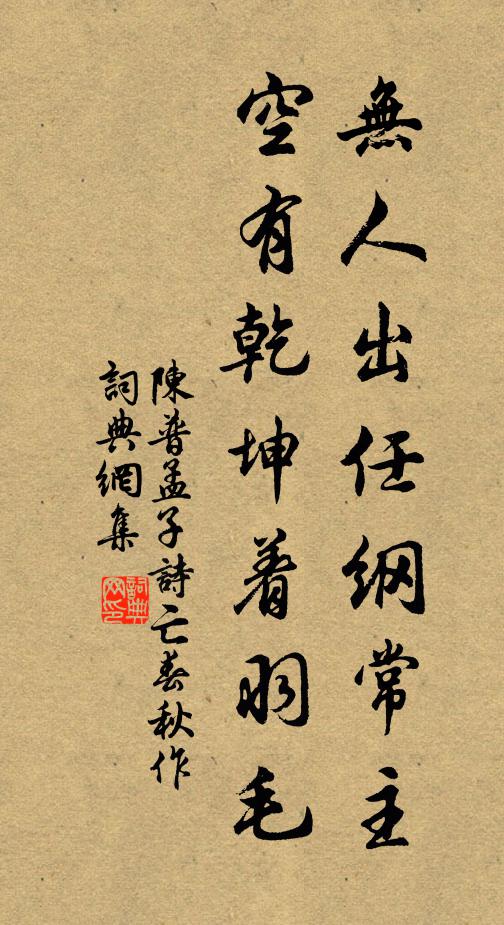 無人出任綱常主
空有乾坤着羽毛
陳普孟子詩亡春秋作
詞典網集
詞典網印